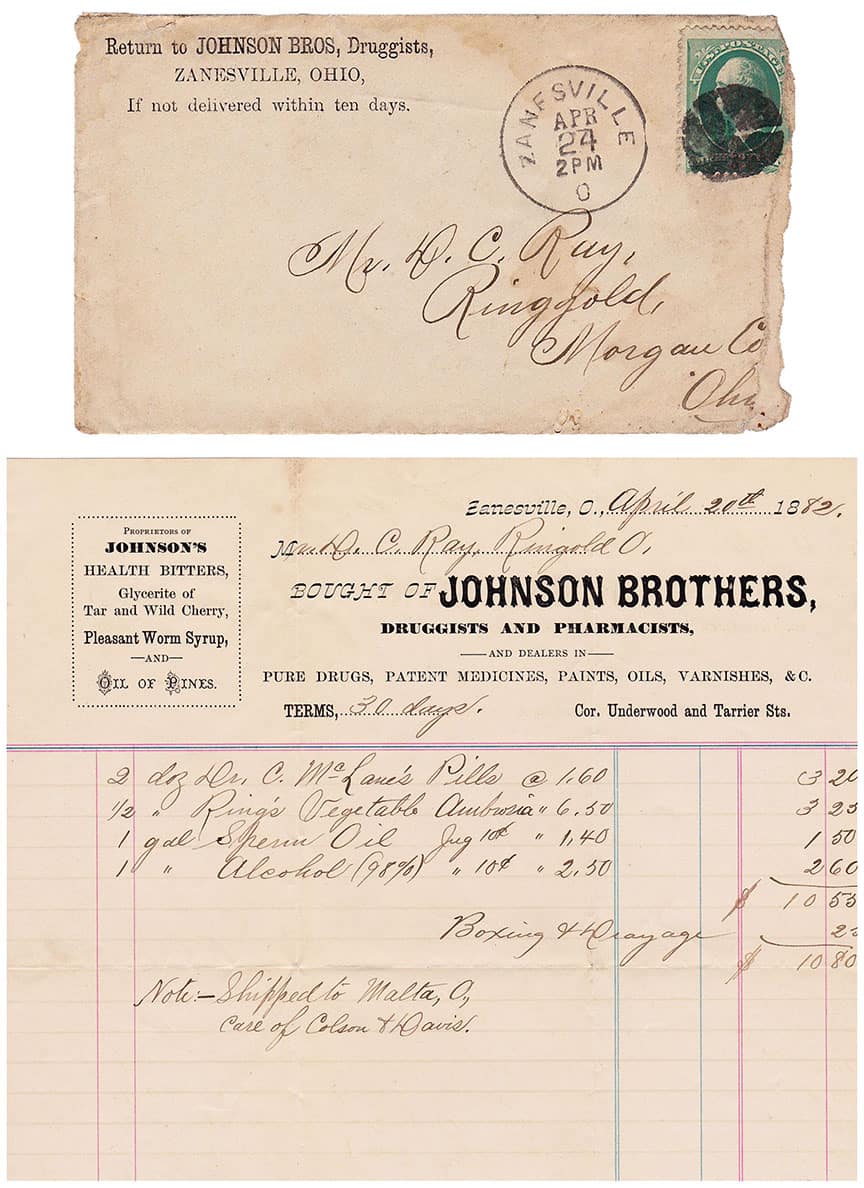 Return to JOHNSON BROS, Druggists,
ZANESVILLE, OHIO,
If not delivered within ten days.
ZANESVILLE
APR
24
2PM
O
U.S. POSTAGE
Mr. D. C. Ray,
Ringgold,
Morgan Co
Ohio
Zanesville, O., April 20th 1882.
Mr. D. C. Ray, Ringold O,
BOUGHT OF JOHNSON BROTHERS,
DRUGGISTS AND PHARMACISTS,
AND DEALERS IN
PURE DRUGS, PATENT MEDICINES, PAINTS, OILS, VARNISHES, &C.
TERMS, 30 days. Cor. Underwood and Tarrier Sts.
PROPRIETORS OF
JOHNSON'S
HEALTH BITTERS,
Glycerite of
Tar and Wild Cherry,
Pleasant Worm Syrup,
—AND—
OIL OF PINES.
2 doz Dr. C. McLane's Pills @ 1.60 3 20
1/2 " Ring's Vegetable Ambrosia " 6.50 3 25
1 gal Sperm Oil Jug 10¢ " 1.40 1 50
1 " Alcohol (98%) " 10¢ " 2.50 2 60
$ 10 55
Boxing & Drayage 25
$ 10 80
Note:- Shipped to Malta, O,
care of Colson & Davis.